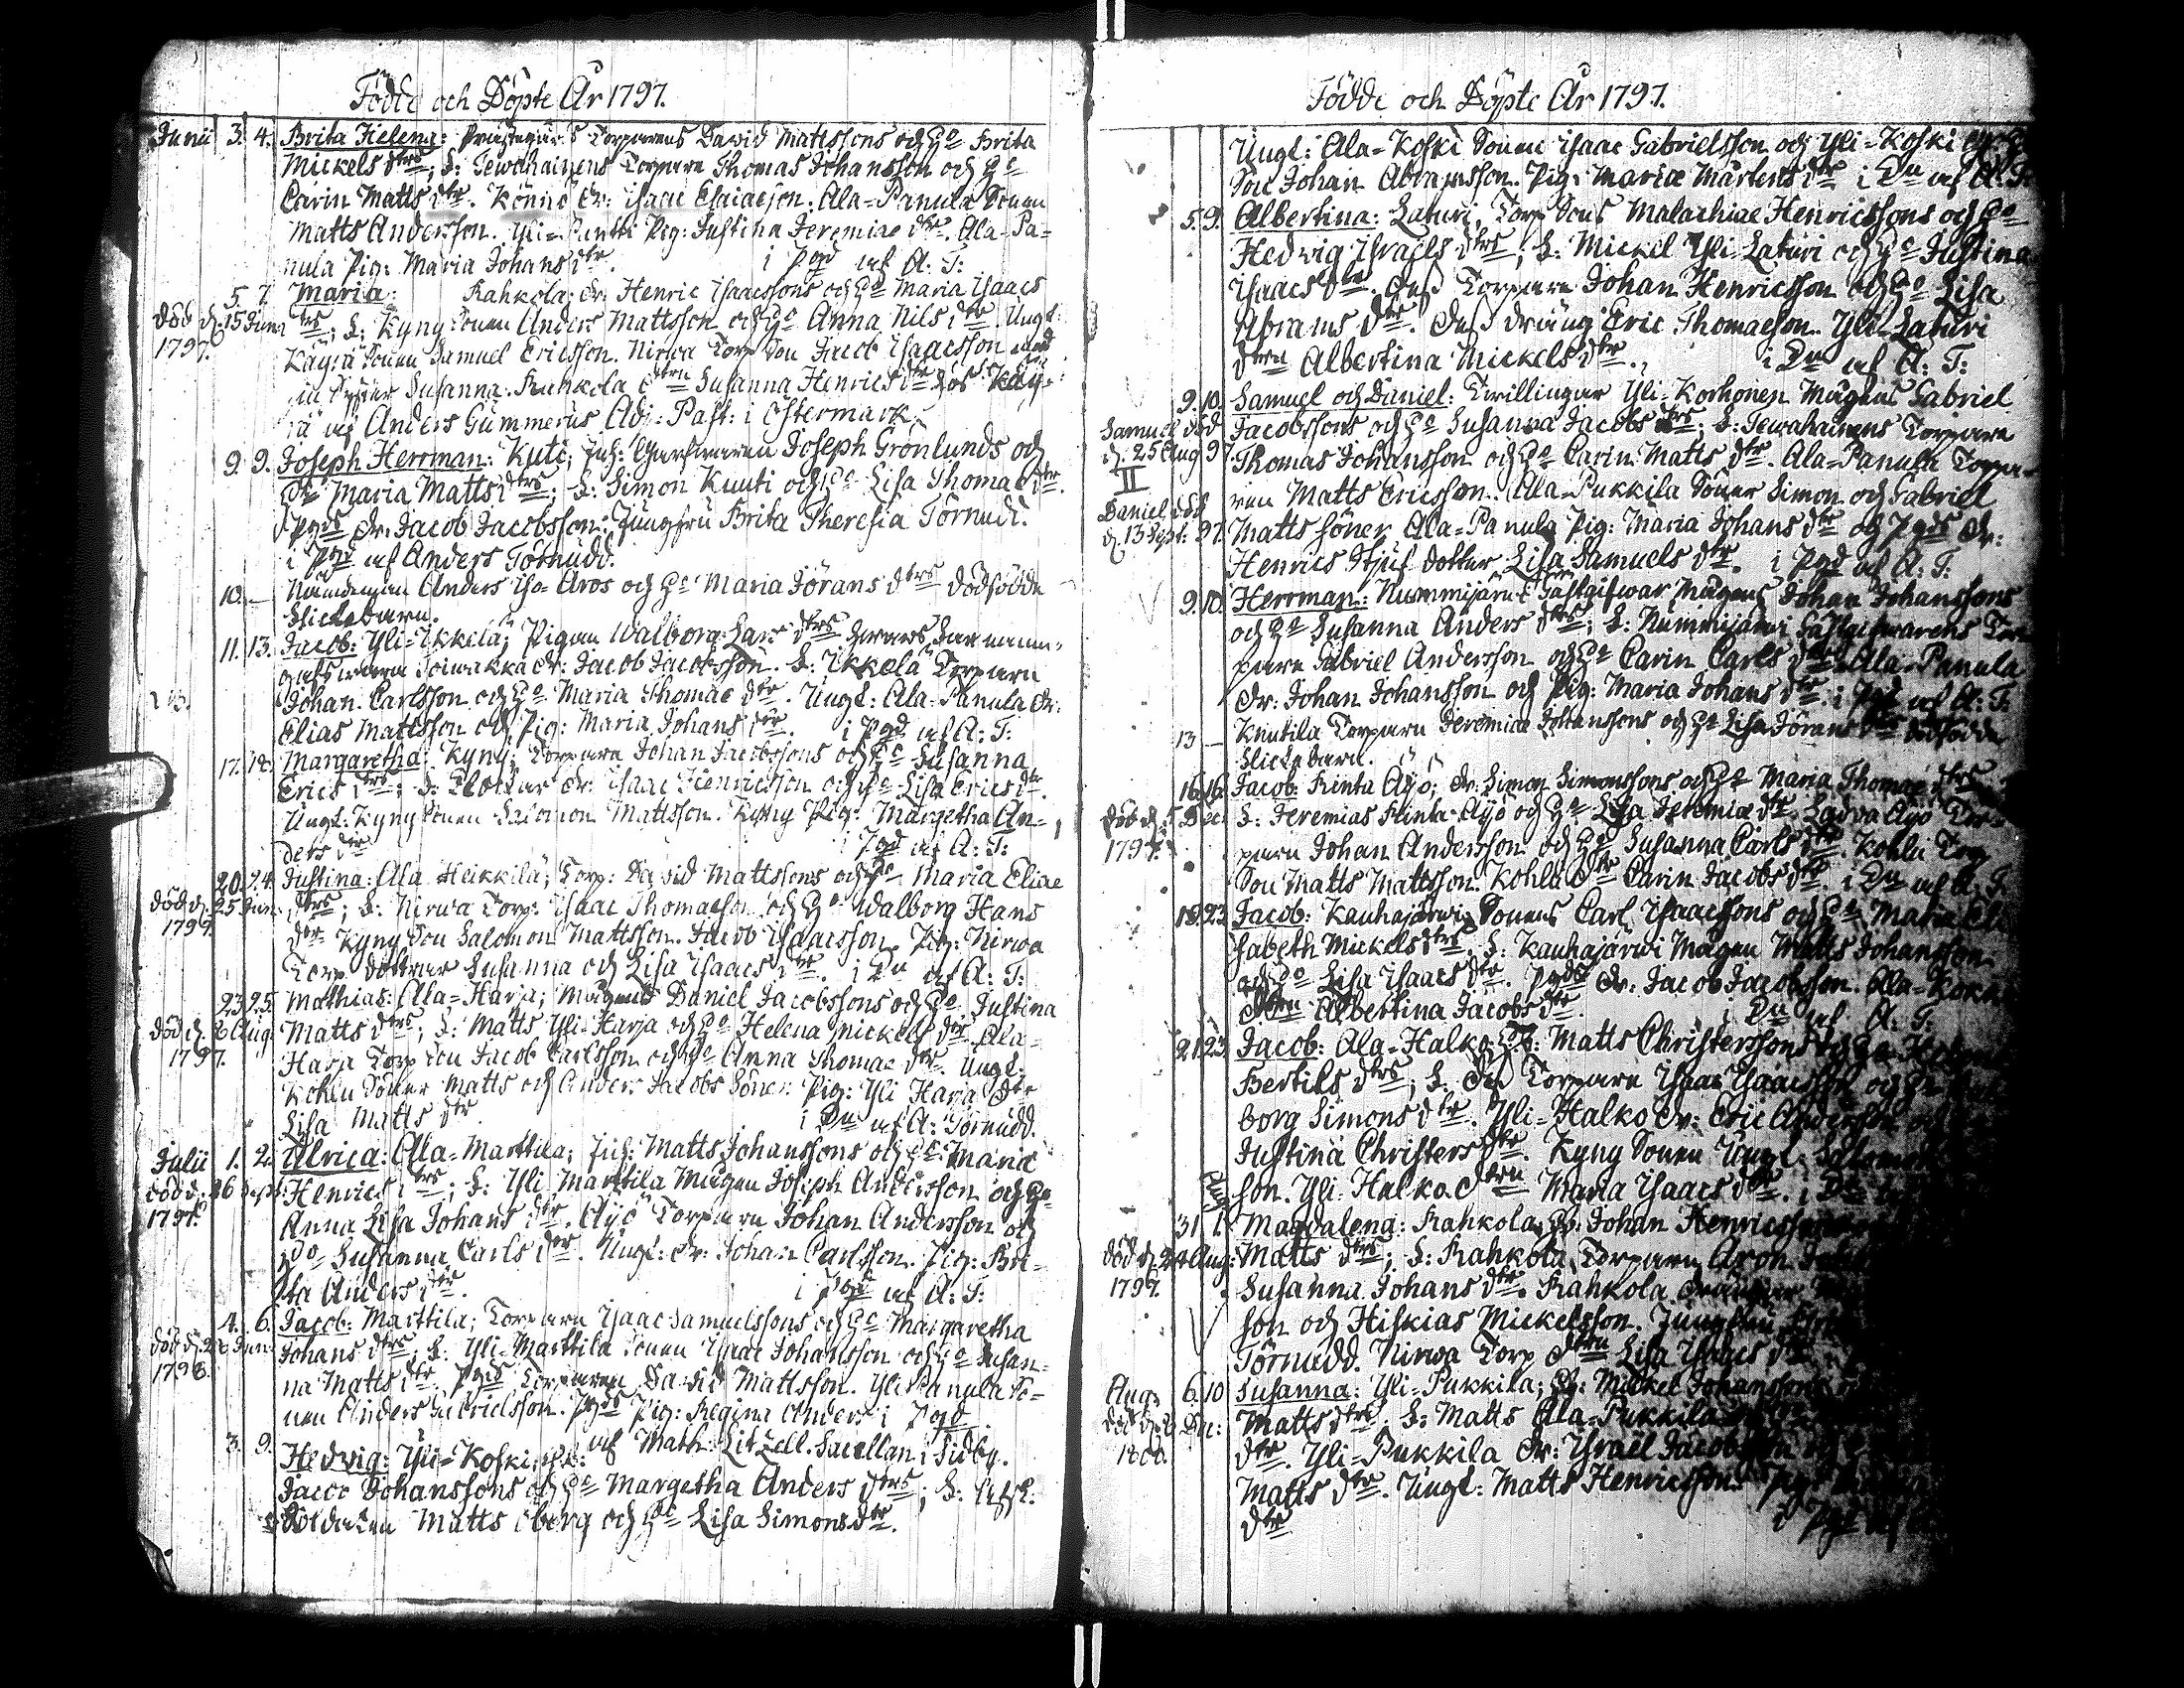 Födde och Döpte År 1797.
Junii 3. 4. Brita Helena: Torparens David Mattssons och H° Brita
Mickels dtrs; S: Tewahainens Torpare Thomas Johansson och H°
Carin Matts dtr. Könni Dr: Isaac Esaiaeson. Ala-Panula Sonen
Matts Andersson. Yli-Kuutti Pig: Justina Jeremiae dtr. Ala-Pa-
nula Pig: Maria Johans dtr. i Pgd af A: T:
5. 7. Maria: Rahkola; Dr: Henric Isaacssons och H° Maria Isaacs
död d. 15 Junii dtrs; S: Kyny Sonen Anders Mattsson och H° Anna Nils dtr. Ungl:
1797. Käyrä Sonen Samuel Ericsson. Nirwa Torp Son Jacob Isaacsson med
Syster Susanna. Rahkola dtrn Susanna Henrics dtr hos Käy-
rä af Anders Gummerus Adj: Past: i Östermark.
9. 9. Joseph Herrman: Kuti; Inh: Garfwaren Joseph Grönlunds och
H° Maria Matts dtrs; S: Simon Kuuti och H° Lisa Thomae dtr.
Pgds Dr: Jacob Jacobsson. Jungfru Brita Theresia Törnudd.
i Pgd af Anders Törnudd.
10. — Nämdeman Anders Iso-Aros och H° Maria Jörans dtrs dödfödde
flickebarn.
11. 13. Jacob: Yli-Ikkelä; Pigan Walborg Lars dtrs
Toiwakka Dr: Jacob Jacobsson. S: Ikkelä Torparn
Johan Carlsson och H° Maria Thomae dtr. Ungl: Ala-Panula Dr:
Elias Mattsson och Pig: Maria Johans dtr. i Pgd af A: T:
17. 18. Margaretha: Kyny; Torparn Johan Jacobssons och H° Susanna
Erics dtrs; S: Dr: Isaac Henricsson och H° Lisa Erics dtr.
Ungl: Kyny Sonen Salomon Mattsson. Kyny Pig: Margetha An-
ders dtr i Pgd af A: T:
20. 24. Justina: Ala Heikkilä; Torp: David Mattssons och H° Maria Eliae
död d. 25 Jun: dtrs; S: Nirwa Torp: Isaac Thomaeson och H° Walborg Hans
1799. dtr. Kyny Son Salomon Mattsson. Jacob Isaacsson. Pig: Nirwa
Torp: döttrar Susanna och Lisa Isaacs dtr. i Dn af A: T:
23. 25. Mathias: Ala-Harja; Mågens Daniel Jacobssons och H° Justina
död d. Aug: Matts dtrs; S: Matts Yli-Harja och H° Helena Mickels dtr. Ala-
1797. Harja Torp Son Jacob Carlsson och H° Anna Thomae dtr. Ungl:
Kohlu Söner Matts och Anders Jacobs Söner. Pig: Yli Harja dtr
Lisa Matts dtr i Dn af A: Törnudd.
Julii 1. 2. Ulrica: Ala-Marttila; Inh: Matts Johanssons och H° Maria
död d. 26 Sept: Henrics dtrs; S: Yli Marttila Mågen Joseph Andersson och H°
1797. Anna Lisa Johans dtr. Äyö Torparn Johan Andersson och
H° Susanna Carls dtr. Ungl: Dr: Johan Carlsson. Pig: Bri-
ta Anders dtr. i Pgd af A: T:
4. 6. Jacob: Marttila; Torparn Isaac Samuelssons och H° Margaretha
död d. Jun: Johans dtrs; S: Yli-Marttila Sonen Isaac Johansson och H° Susan-
1798. na Matts dtr. Pgds Torparen David Mattsson. Yli Panula So-
nen Anders Gabrielsson. Pgds Pig: Regina Anders: i Pgd
af Math: Litzell Sacellan i Sidby.
3. 9. Hedvig: Yli-Koski;
Jacob Johanssons och H° Margetha Anders dtrs; S:
Soldaten Matts Öberg och H° Lisa Simons dtr.
Födde och Döpte År 1797.
Ungl: Ala-Koski Sonen Isaac Gabrielsson och Yli-Koski
Son Johan Abramsson. Pig: Maria Mårtens dtr i Dn af A: T:
5. 9. Albertina: Laturi Torp Sons Malachiae Henricssons och H°
Hedwig Israels dtrs; S: Mickel Yli-Laturi och H° Justina
Isaacs dtr. Torparn Johan Henricsson och H° Lisa
Abrams dtr. dräng Eric Thomaeson. Yli-Laturi
dtrn Albertina Mickels dtr. i Dn af A: T:
9. 10. Samuel och Daniel: Twillingar Yli-Korhonen Mågens Gabriel
Samuel död Jacobssons och H° Susanna Jacobs dtrs; S: Tewahainens Torpare
d. 25 Aug 97. Thomas Johansson och H° Carin Matts dtr. Ala-Panula Torpa-
II ren Matts Ericsson. Ala-Pukkila Söner Simon och Gabriel
Daniel död Matts söner. Ala-Panula Pig: Maria Johans dtr och Pgds Dr:
d. 13 Sept: 97. Henrics Stjuf dotter Lisa Samuels dtr. i Pgd af A: T:
9. 10. Herrman: Nummijärvi Gästgifwar Mågens Johan Johanssons
och H° Susanna Anders dtrs; S: Nummijärvi Gästgifwarens Tor-
parn Gabriel Andersson och H° Carin Carls dtr. Ala-Panula
Dr: Johan Johansson och Pig: Maria Johans dtr. i Pgd af A: T:
13 — Knutila Torparn Jeremiae Johanssons och H° Lisa Jörans dtrs dödfödde
flickebarn.
16. 16. Jacob: Rinta Äyö; Dr: Simon Simonssons och H° Maria Thomae dtrs
död d. 5 Dec: S: Jeremias Rinta-Äyö och H° Lisa Jeremiae dtr. Ladva Äyö Tor-
1797. parn Johan Andersson och H° Susanna Carls dtr. Kohlu Torp
Son Matts Mattsson. Kohlu dtr Carin Jacobs dtr. i Dn af A: T:
19. 23. Jacob: Kauhajärwi Sonens Carl Isaacssons och H° Maria Eli-
sabeth Mickels dtrs; S: Kauhajärwi Mågen Matts Johansson
och H° Lisa Isaacs dtr. Pgds Dr: Jacob Jacobsson. Ala-Kokk
dtrn Albertina Jacobs dtr. i Dn af A: T:
21. 23. Jacob: Ala-Halko; Matts Christerssons och H°
Bertils dtrs; S: Torparn Isaac Isaacsson och H°
borg Simons dtr. Yli-Halko Dr: Eric Andersson
Justina Christers dtr. Kyny Sonen Ungl:
son. Yli-Halko dtrn Maria Isaacs dtr. i Dn
Aug
31 1. Magdalena: Rahkola; Johan Henricssons
död d. 24 Aug: Matts dtrs; S: Rahkola Torparn Aron
1797. Susanna Johans dtr. Rahkola
son och Hiskias Mickelsson. Jungfru
Törnudd. Nirwa Torp dtrn Lisa Isaacs dtr
Aug: 6. 10 Susanna: Yli-Pukkila; Mickel Johanssons
död d. Dec: Matts dtrs; S: Matts Ala-Pukkila
1800. dtr. Yli-Pukkila Dr: Israel Jacobsson
Matts dtr. Ungl: Matts Henricsson. Pig:
dtr i Pgd af